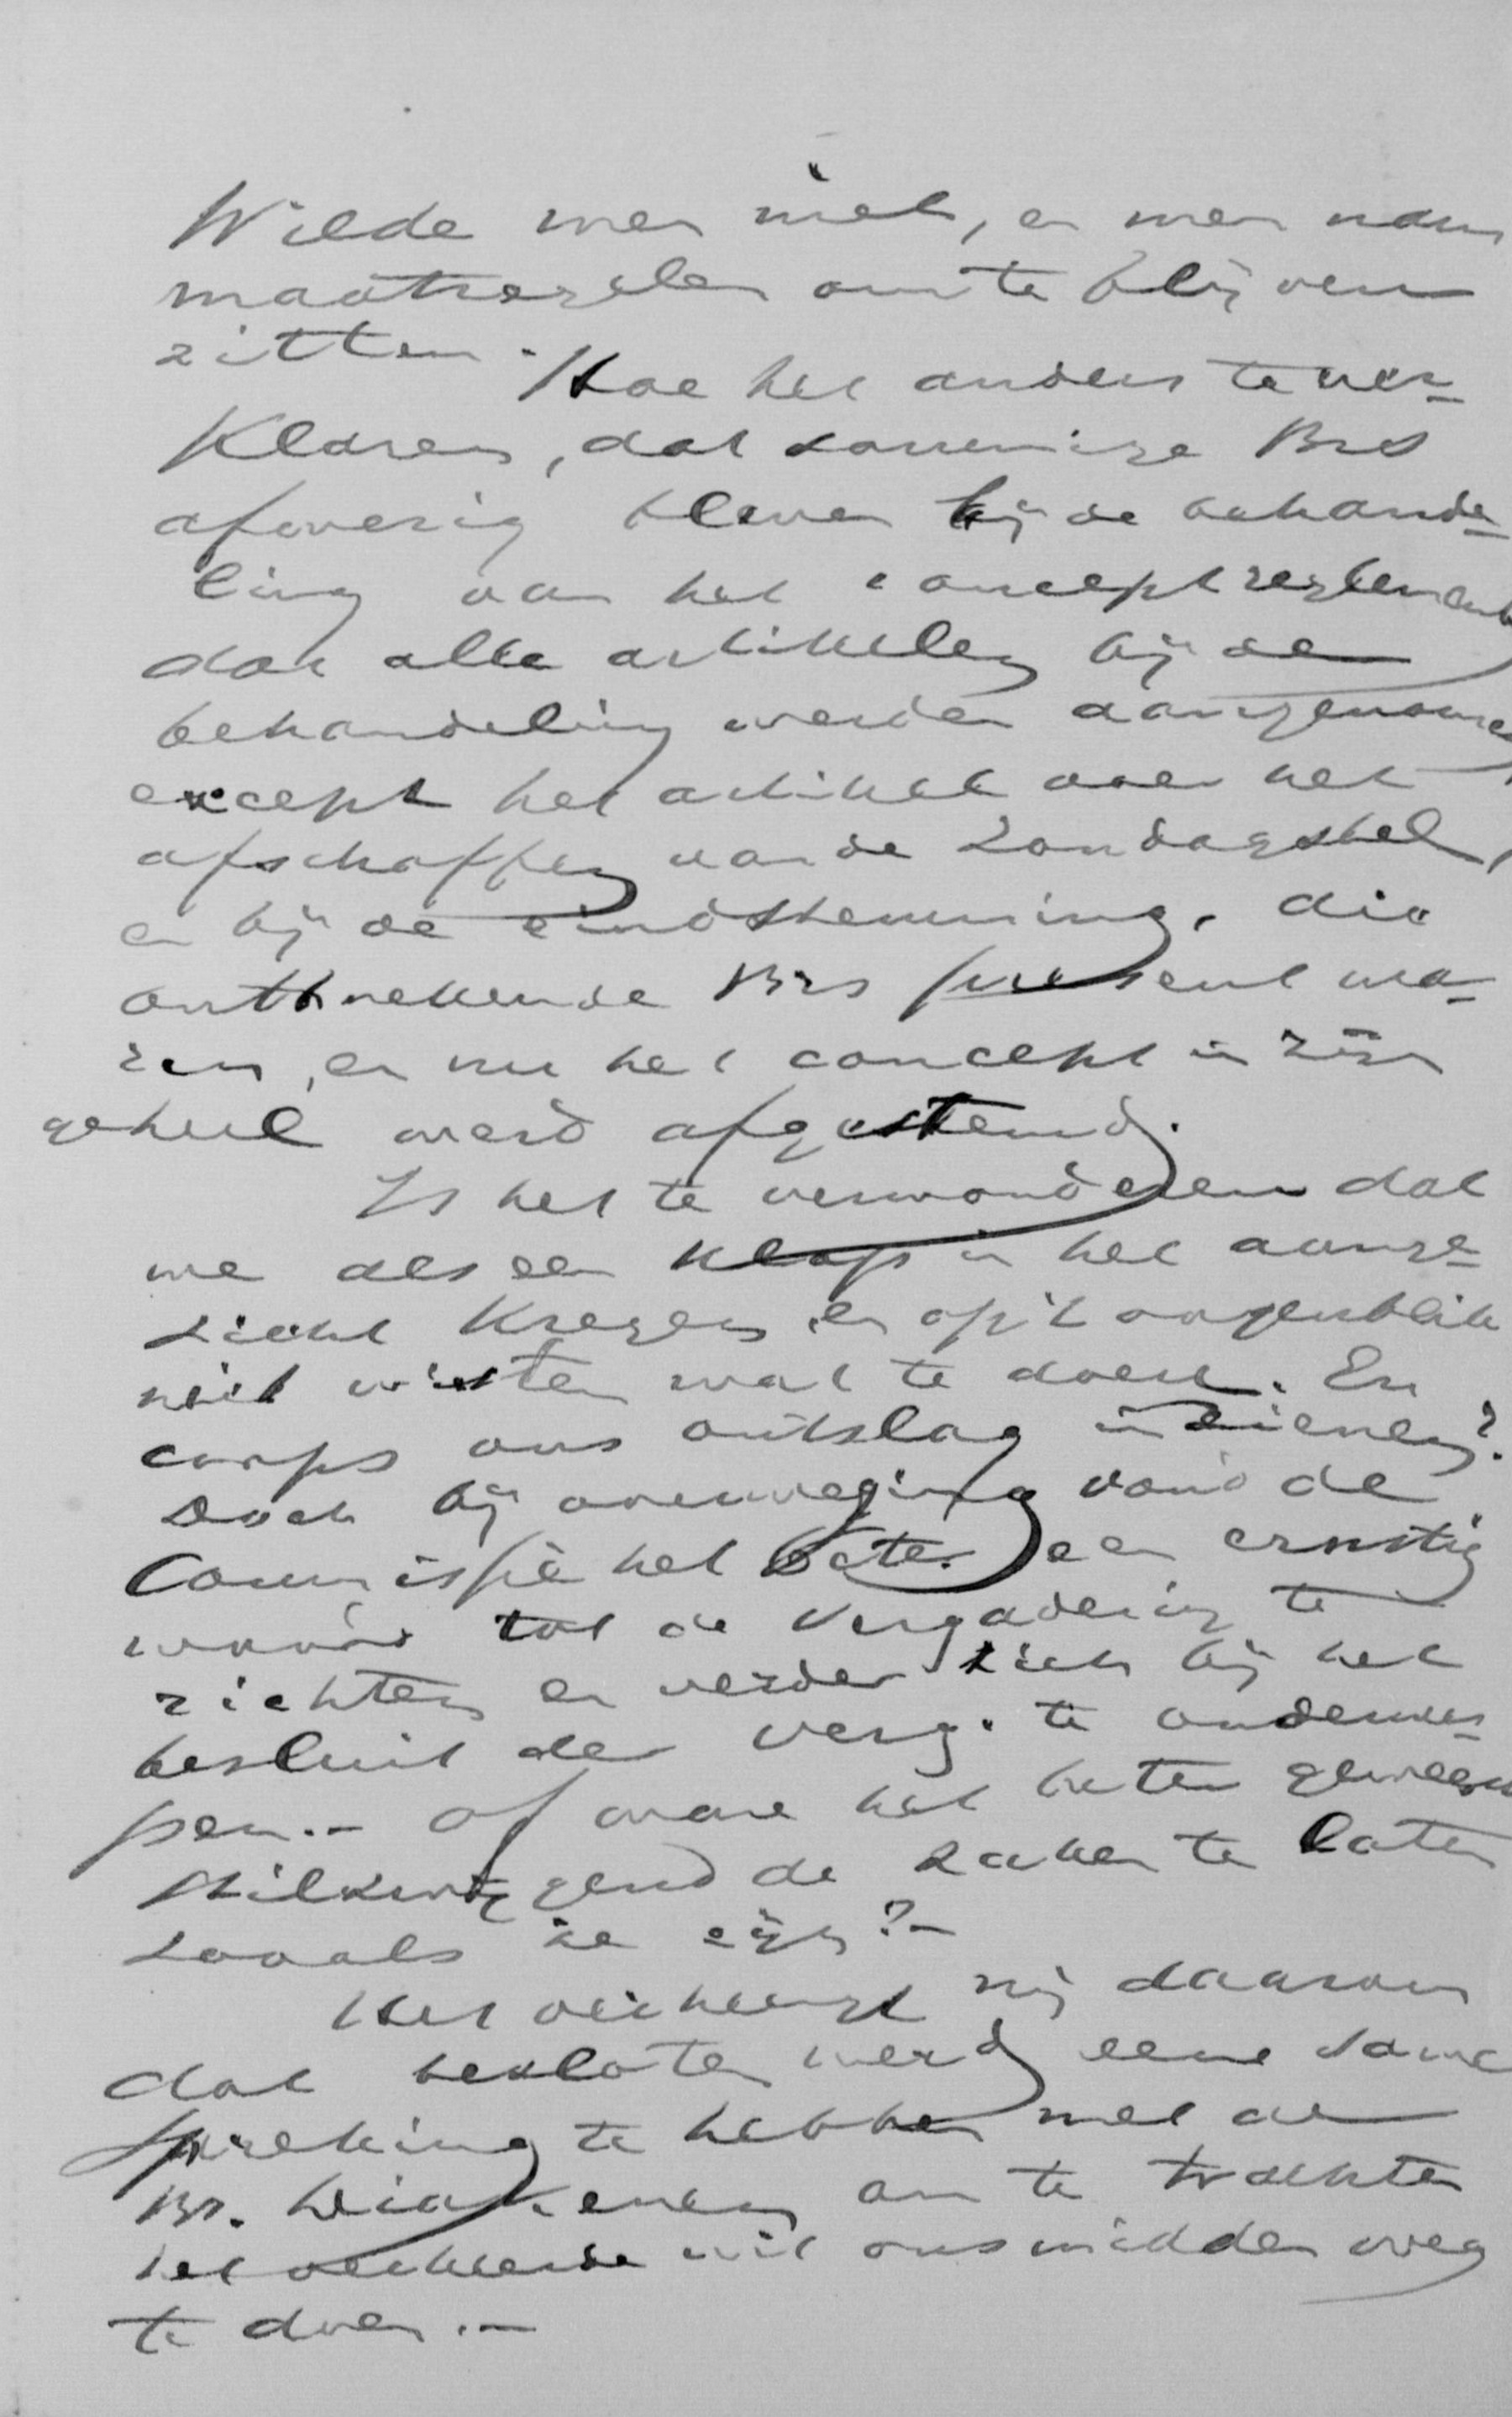 Wilde men niet, en men nam
maatregelen om te blijven
zitten. Hoe het anders te ver-
klaren, dat sommige Brs
afwezig bleven bij de behande-
ling van het conceptreglement
dat alle artikelen bij de
behandeling werden aangenomen
except het artikel over het
afschaffen van de Zondagsbel,
en bij de eindstemming, die
onttrekkende Brs present wa-
ren, en nu het concept in zijn
geheel werd afgestemd.
Is het te verwonderen dat
we als een klap in het aange-
zicht kregen en op 't oogenblik
niet wisten wat te doen. En
corps ons ontslag indienen?
Doch bij overweging vond de
Commissie het beter een ernstig
woord tot de Vergadering te
richten en verder zich bij het
besluit der Verg. te onderwer-
pen.- Of ware het beter geweest
stilzwijgend de zaken te laten
zooals ze zijn?-
Het verheugt mij daarom
dat besloten werd eene same
spreking te hebben met de
Br. om te trachten
het verkeerde uit ons midden weg
te doen.-